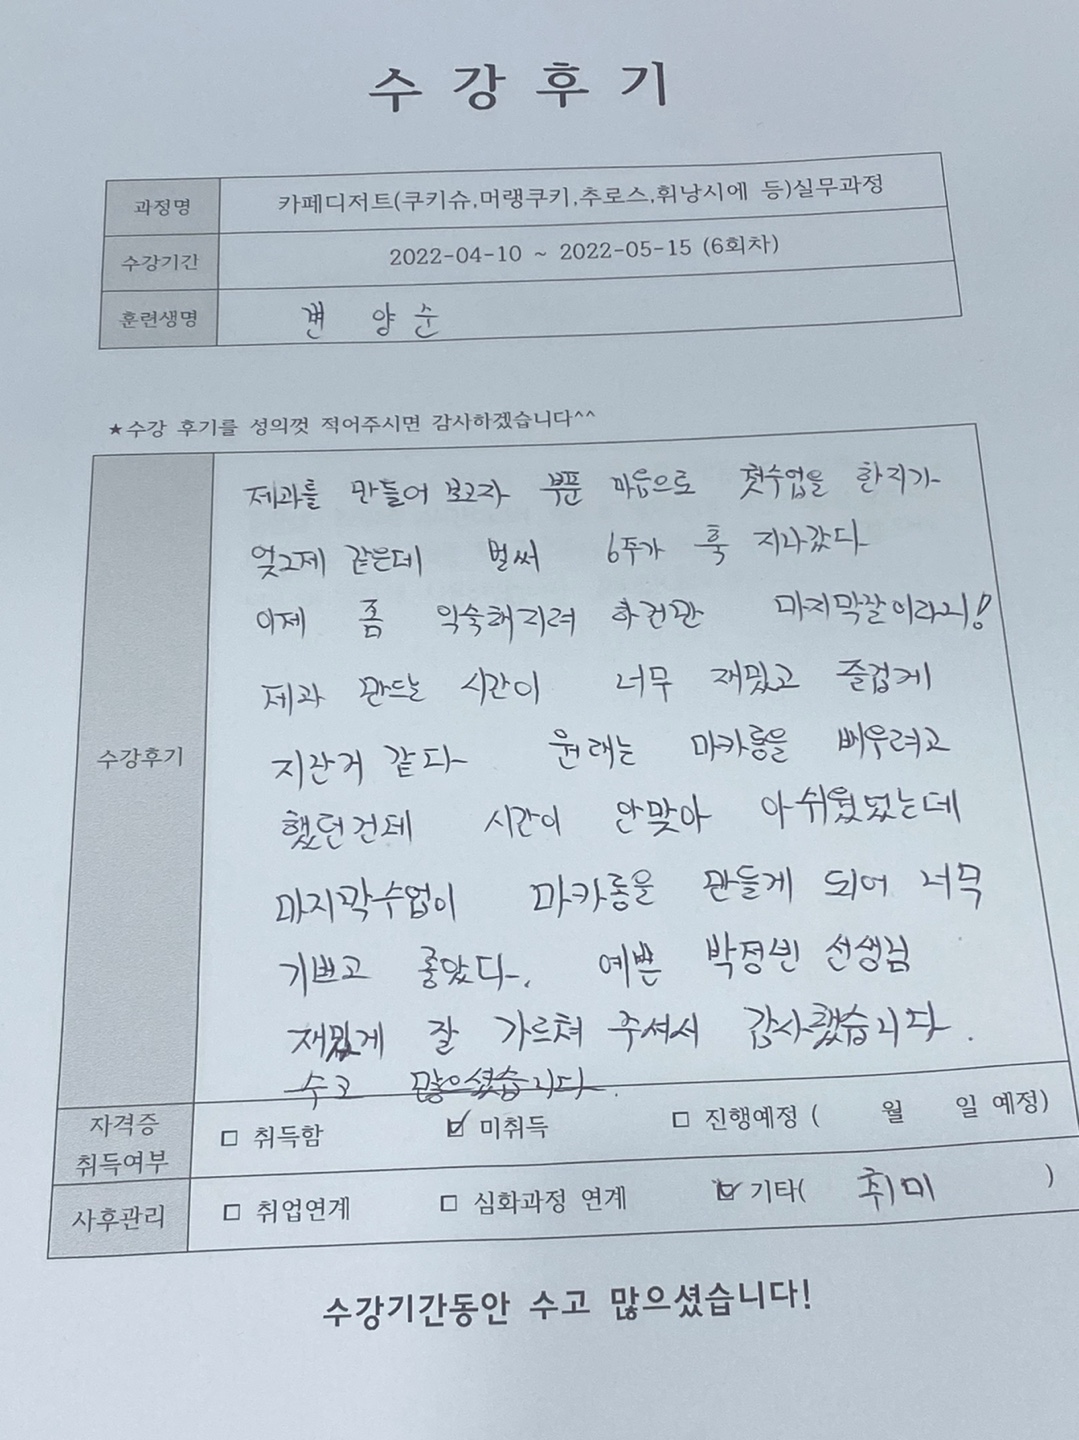 수 강 후 기
과정명 카페디저트(쿠키슈,머랭쿠키,추로스,휘낭시에 등)실무과정
수강기간 2022-04-10 ~ 2022-05-15 (6회차)
훈련생명 양순
★수강 후기를 성의껏 적어주시면 감사하겠습니다^^
수강후기
제과를 만들어 보고자 부푼 마음으로 첫수업을 한지가
엊그제 같은데 벌써 6주가 훅 지나갔다
이제 좀 익숙해지려 하건만 마지막날이라니!
제과 만드는 시간이 너무 재밌고 즐겁게
지난거 같다 원래는 마카롱을 배우려고
했던건데 시간이 안맞아 아쉬웠었는데
마지막수업이 마카롱을 만들게 되어 너무
기쁘고 좋았다. 예쁜 박정빈 선생님
재밌게 잘 가르쳐 주셔서 감사했습니다.
수고 많으셨습니다.
자격증 취득여부 □ 취득함 ☑ 미취득 □ 진행예정 ( 월 일 예정)
사후관리 □ 취업연계 □ 심화과정 연계 ☑ 기타( 취미 )
수강기간동안 수고 많으셨습니다!